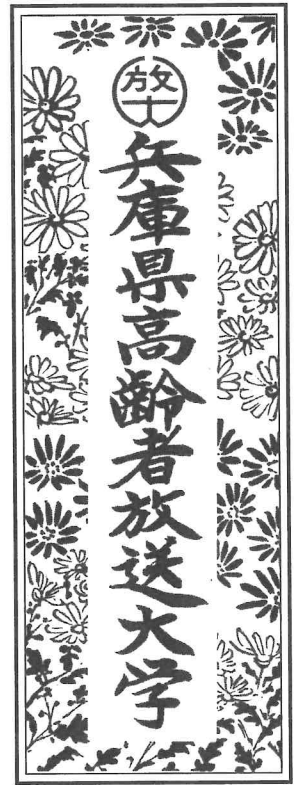 放大
兵庫県高齢者放送大学